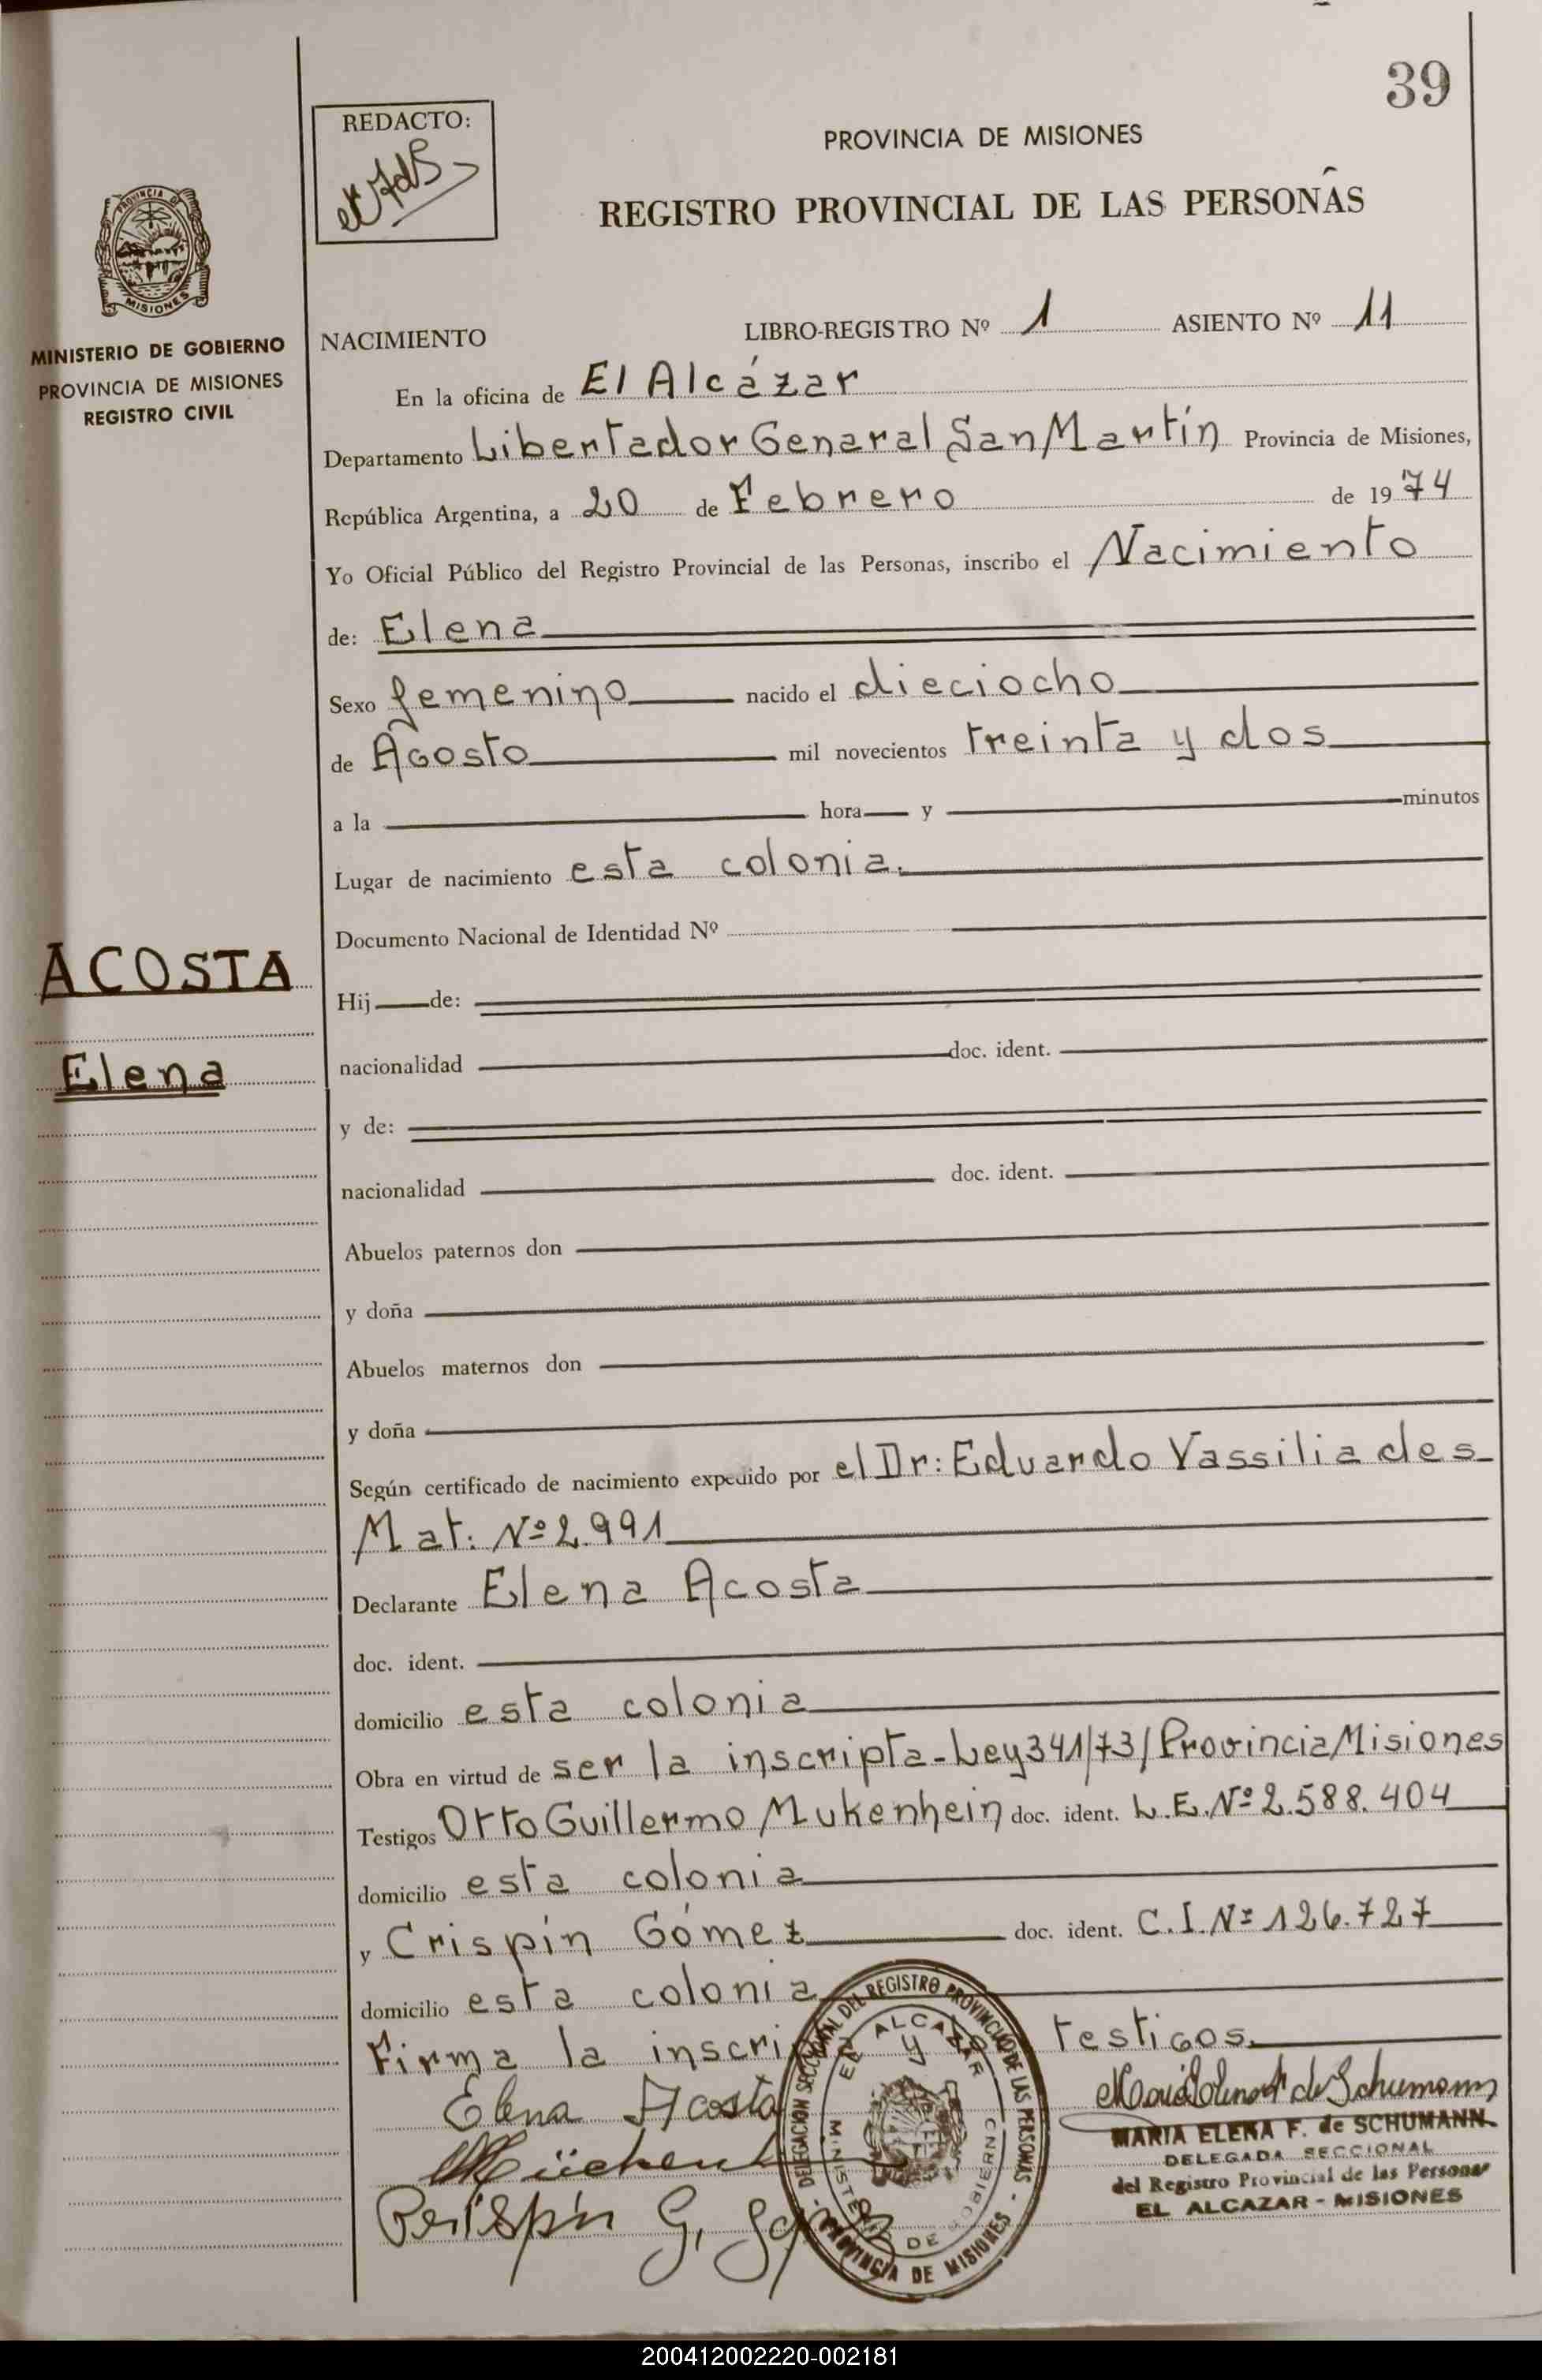 39
REDACTO:
PROVINCIA DE MISIONES
REGISTRO PROVINCIAL DE LAS PERSONAS
PROVINCIA DE
MISIONES
MINISTERIO DE GOBIERNO
PROVINCIA DE MISIONES
REGISTRO CIVIL
NACIMIENTO LIBRO-REGISTRO Nº 1 ASIENTO Nº 11
En la oficina de El Alcázar
Departamento Libertador General San Martín Provincia de Misiones,
República Argentina, a 20 de Febrero de 1974
Yo Oficial Público del Registro Provincial de las Personas, inscribo el Nacimiento
de: Elena
Sexo femenino nacido el dieciocho
de Agosto mil novecientos treinta y dos
a la hora y minutos
Lugar de nacimiento esta colonia.
Documento Nacional de Identidad Nº
ACOSTA
Elena
Hij de:
nacionalidad doc. ident.
y de:
nacionalidad doc. ident.
Abuelos paternos don
y doña
Abuelos maternos don
y doña
Según certificado de nacimiento expedido por el Dr: Eduardo Vassiliades
Mat: Nº 2.991
Declarante Elena Acosta
doc. ident.
domicilio esta colonia
Obra en virtud de ser la inscripta-Ley 341/73/Provincia Misiones
Testigos Otto Guillermo Mukenhein doc. ident. L.E.Nº 2.588.404
domicilio esta colonia
y Crispín Gómez doc. ident. C.I.Nº 126.727
domicilio esta colonia
Firma la inscri y testigos.
Elena Acosta
Crispín G. Gómez
DELEGACION SECCIONAL DEL REGISTRO PROVINCIAL DE LAS PERSONAS -
PROVINCIA DE MISIONES -
EL ALCAZAR
MINISTERIO DE GOBIERNO
MARIA ELENA F. de SCHUMANN
DELEGADA SECCIONAL
del Registro Provincial de las Personas
EL ALCAZAR - MISIONES
200412002220-002181